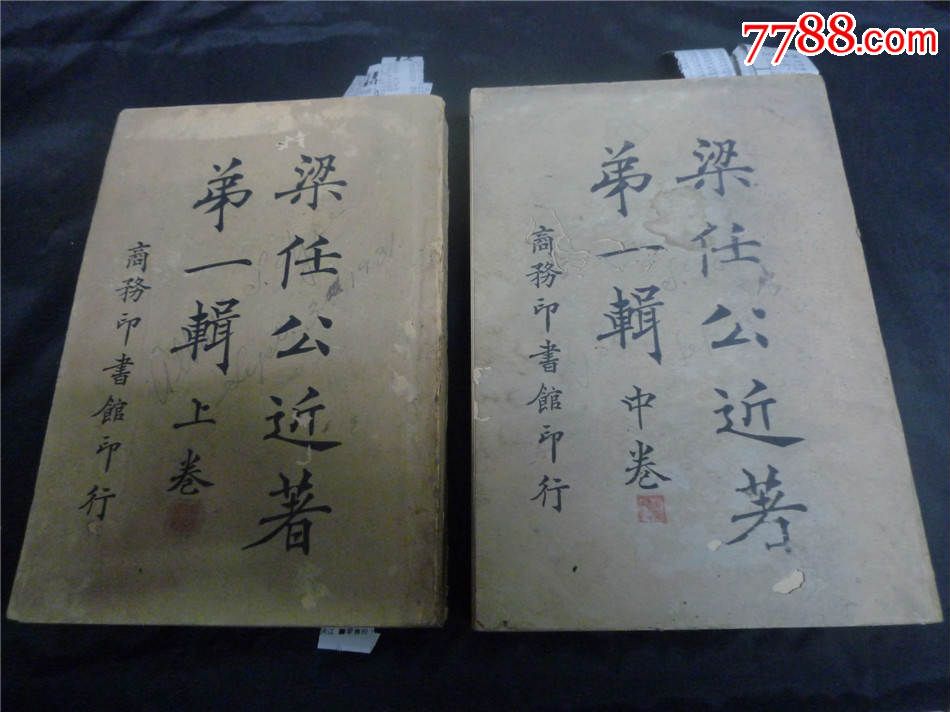 7788.com
梁任公近著
第一輯 上卷
商務印書館印行
梁任公近著
第一輯 中卷
商務印書館印行